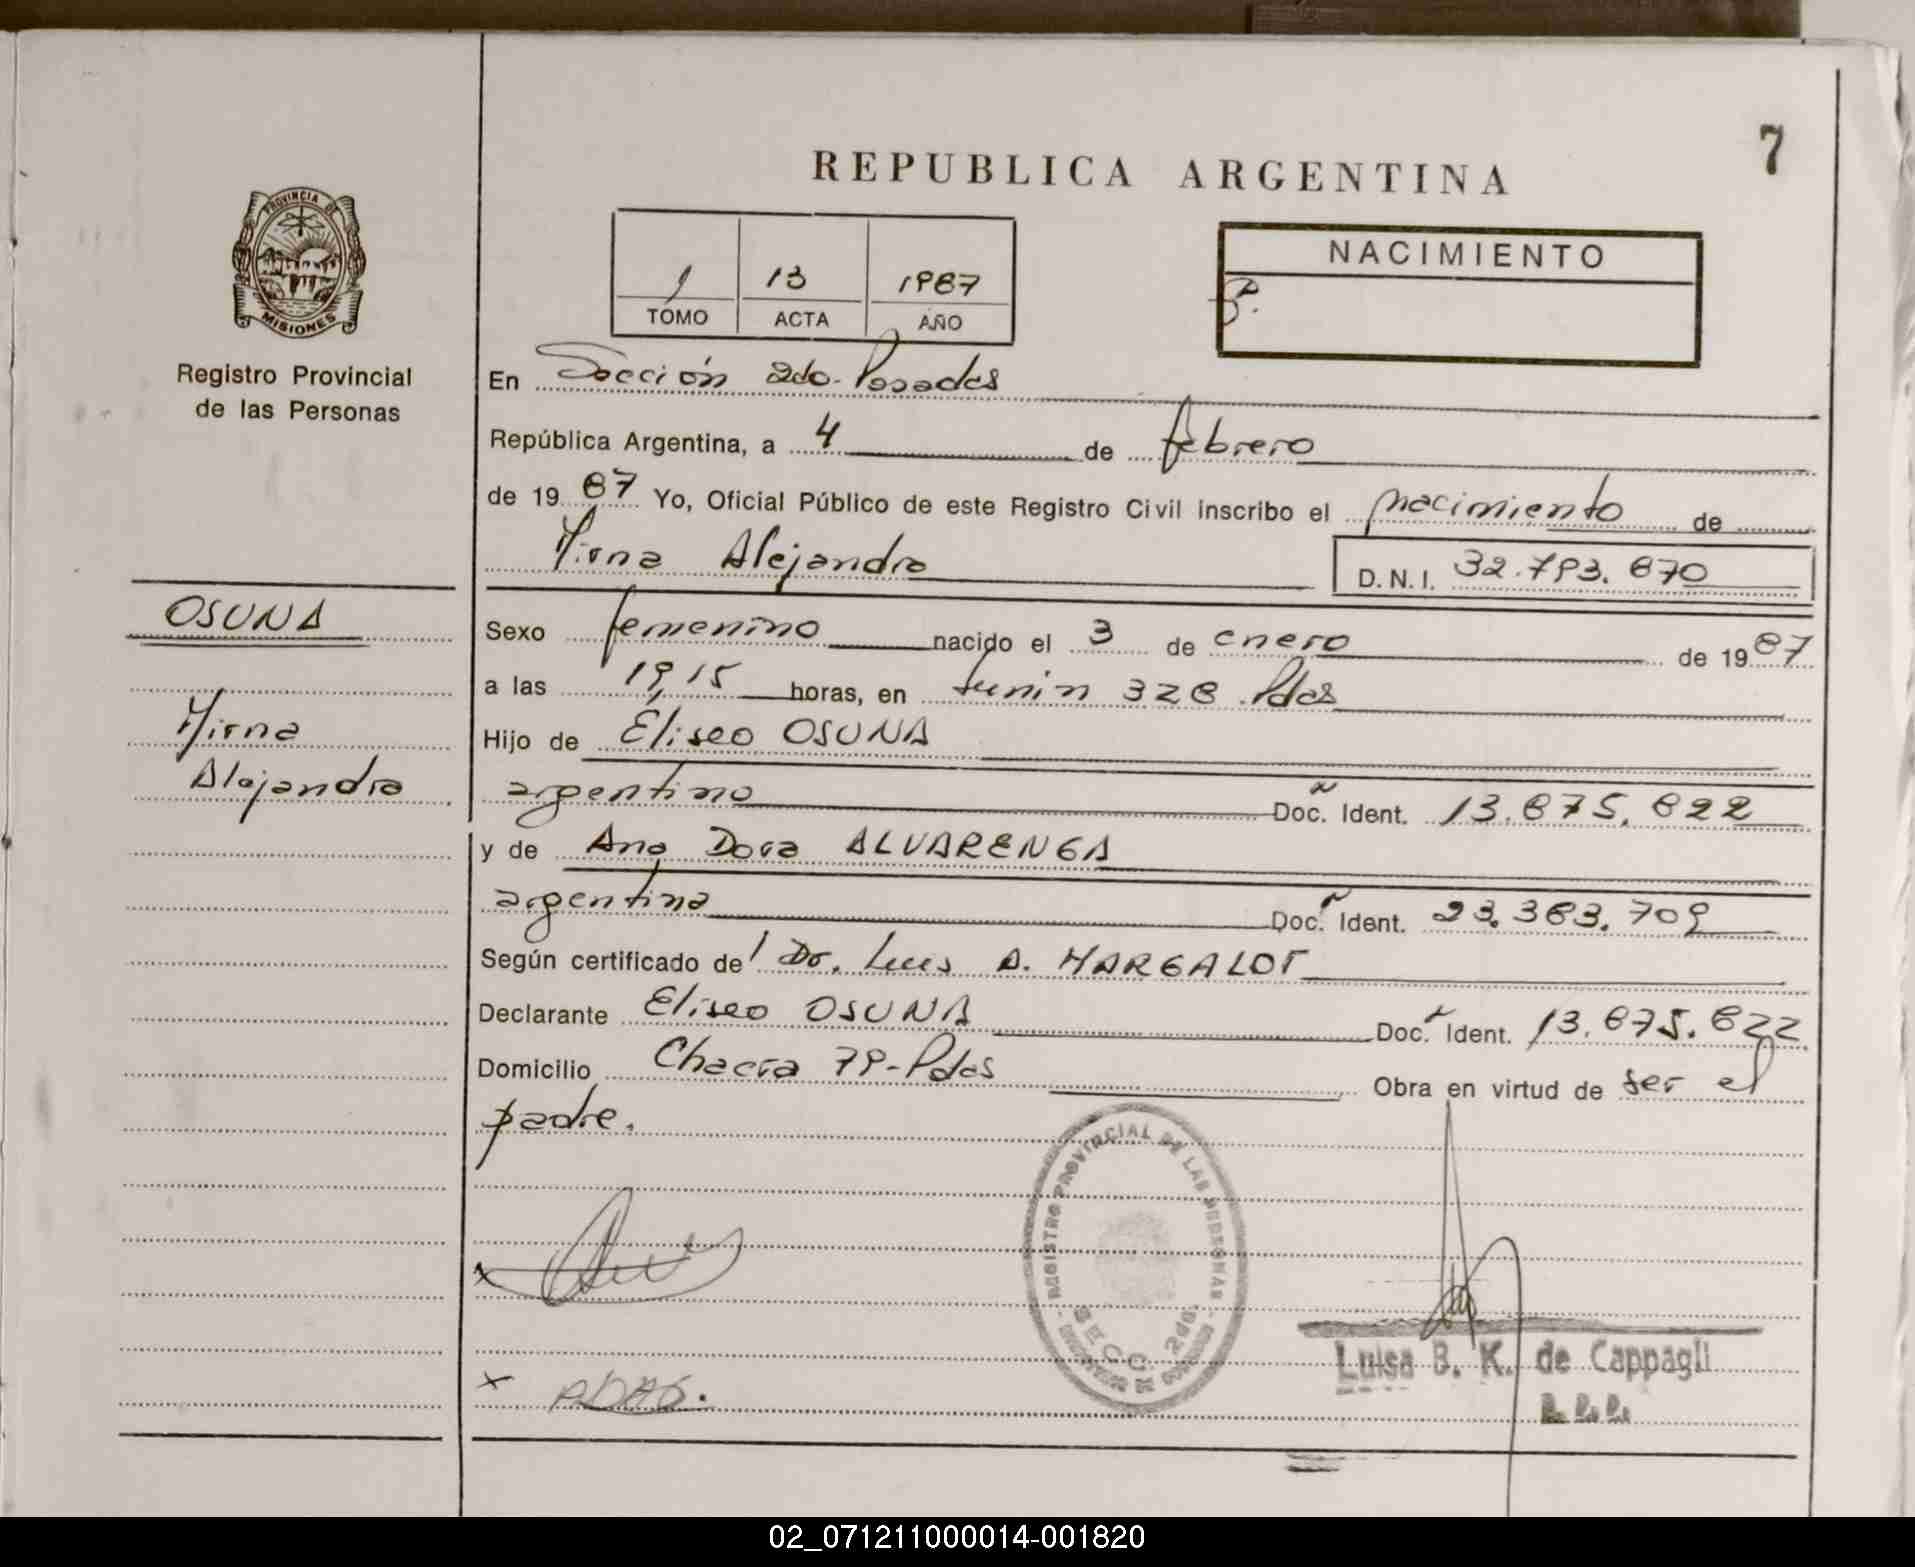 7
REPUBLICA ARGENTINA
PROVINCIA DE
MISIONES
Registro Provincial
de las Personas
1 13 1987
TOMO ACTA AÑO
NACIMIENTO
En Sección 2do. Posadas
República Argentina, a 4 de febrero
de 19 87 Yo, Oficial Público de este Registro Civil inscribo el nacimiento de
Mirna Alejandra
D. N. I. 32.793.870
OSUNA
Mirna
Alejandra
Sexo femenino nacido el 3 de enero de 19 87
a las 19,15 horas, en Junin 328 Pdas
Hijo de Eliseo OSUNA
argentino Doc. Ident. 13.875.822
y de Ana Dora ALVARENGA
argentina Doc. Ident. 23.383.709
Según certificado del Dr. Luis A. MARGALOT
Declarante Eliseo OSUNA Doc. Ident. 13.875.822
Domicilio Chacra 79-Pdas Obra en virtud de ser el
padre.
REGISTRO PROVINCIAL DE LAS PERSONAS
SECC. 2da.
Luisa B. K. de Cappagli
02_071211000014-001820